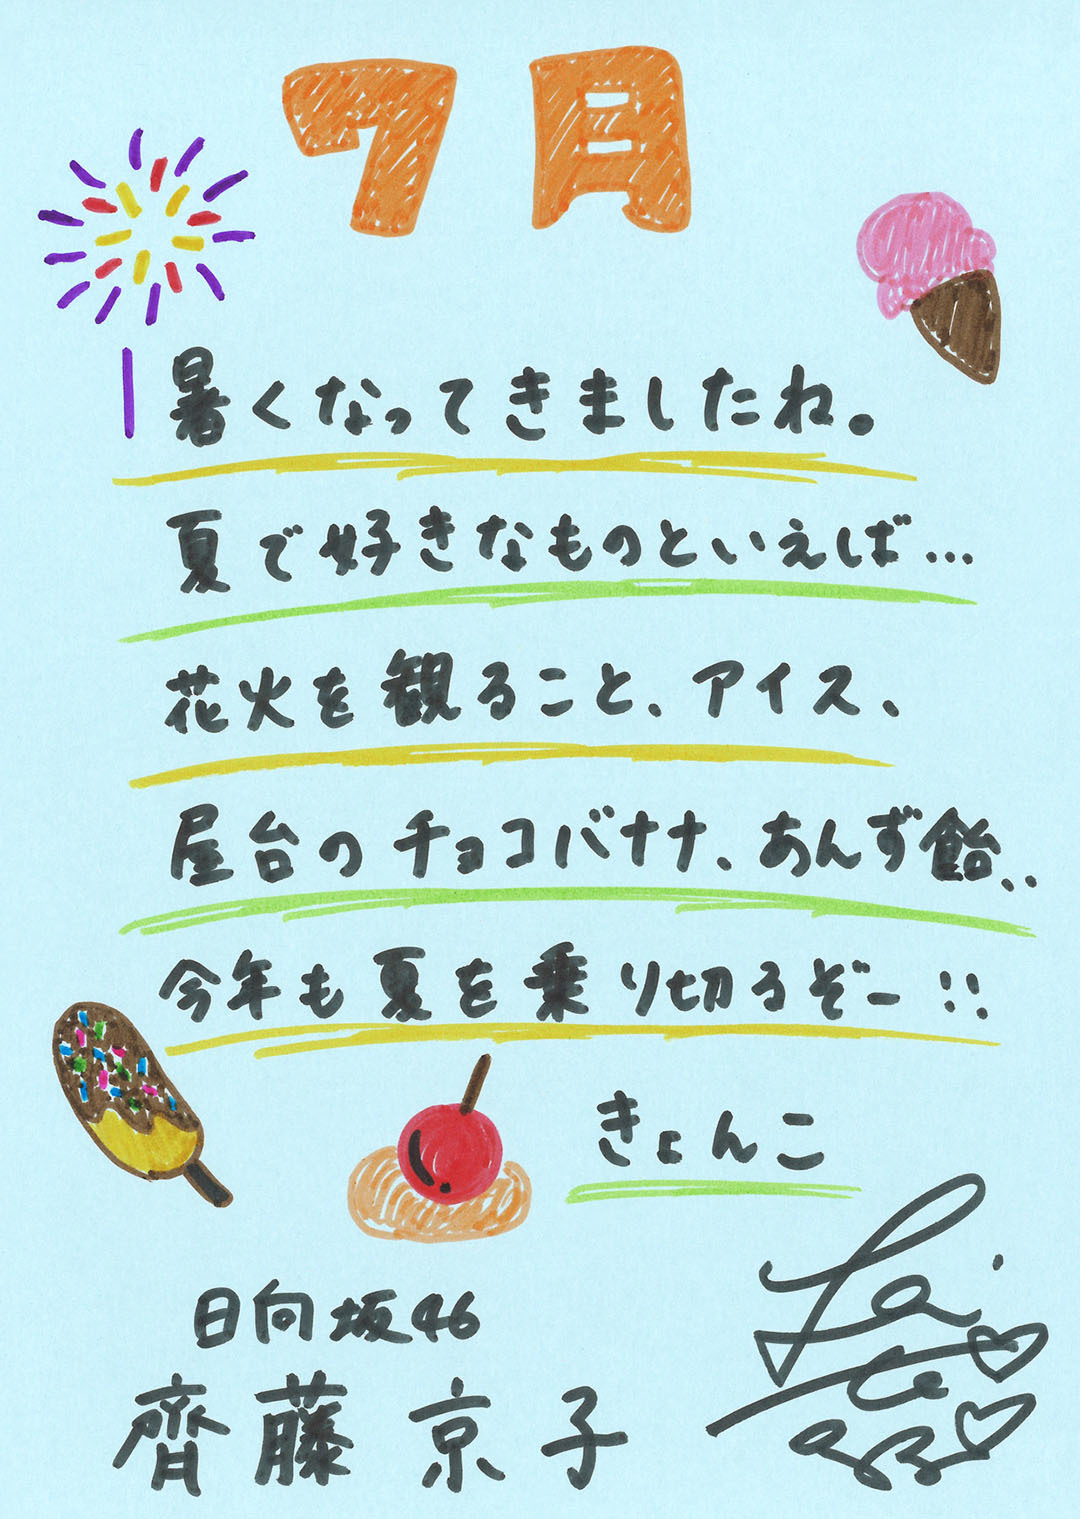 7月
暑くなってきましたね。
夏で好きなものといえば…
花火を観ること、アイス、
屋台のチョコバナナ、あんず飴、、
今年も夏を乗り切るぞー!!
きょんこ
日向坂46
齊藤京子